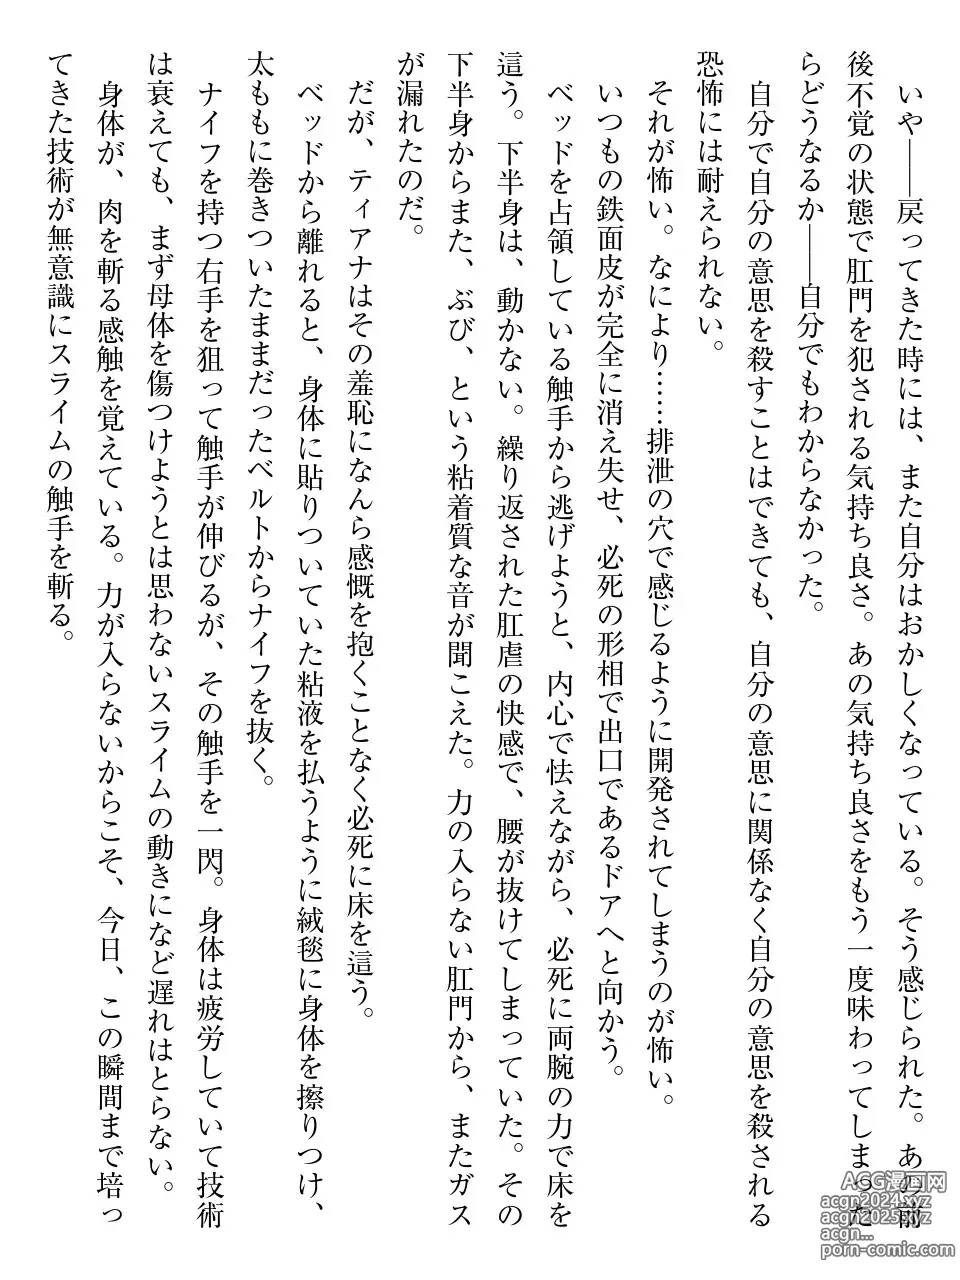 いや――戻ってきた時には、また自分はおかしくなっている。そう感じられた。あの前
後不覚の状態で肛門を犯される気持ち良さ。あの気持ち良さをもう一度味わってしまった
らどうなるか――自分でもわからなかった。
自分で自分の意思を殺すことはできても、自分の意思に関係なく自分の意思を殺される
恐怖には耐えられない。
それが怖い。なにより……排泄の穴で感じるように開発されてしまうのが怖い。
いつもの鉄面皮が完全に消え失せ、必死の形相で出口であるドアへと向かう。
ベッドを占領している触手から逃げようと、内心で怯えながら、必死に両腕の力で床を
這う。下半身は、動かない。繰り返された肛虐の快感で、腰が抜けてしまっていた。その
下半身からまた、ぶび、という粘着質な音が聞こえた。力の入らない肛門から、またガス
が漏れたのだ。
だが、ティアナはその羞恥になんら感慨を抱くことなく必死に床を這う。
ベッドから離れると、身体に貼りついていた粘液を払うように絨毯に身体を擦りつけ、
太ももに巻きついたままだったベルトからナイフを抜く。
ナイフを持つ右手を狙って触手が伸びるが、その触手を一閃。身体は疲労していて技術
は衰えても、まず母体を傷つけようとは思わないスライムの動きになど遅れはとらない。
身体が、肉を斬る感触を覚えている。力が入らないからこそ、今日、この瞬間まで培っ
てきた技術が無意識にスライムの触手を斬る。
ACG漫画网
acgn2024.xyz
acgn2025.xyz
acgn...
porn-comic.com